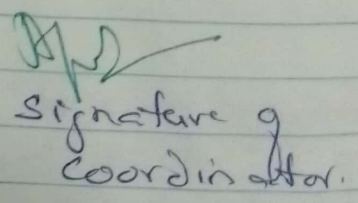 signature of
coordinator.